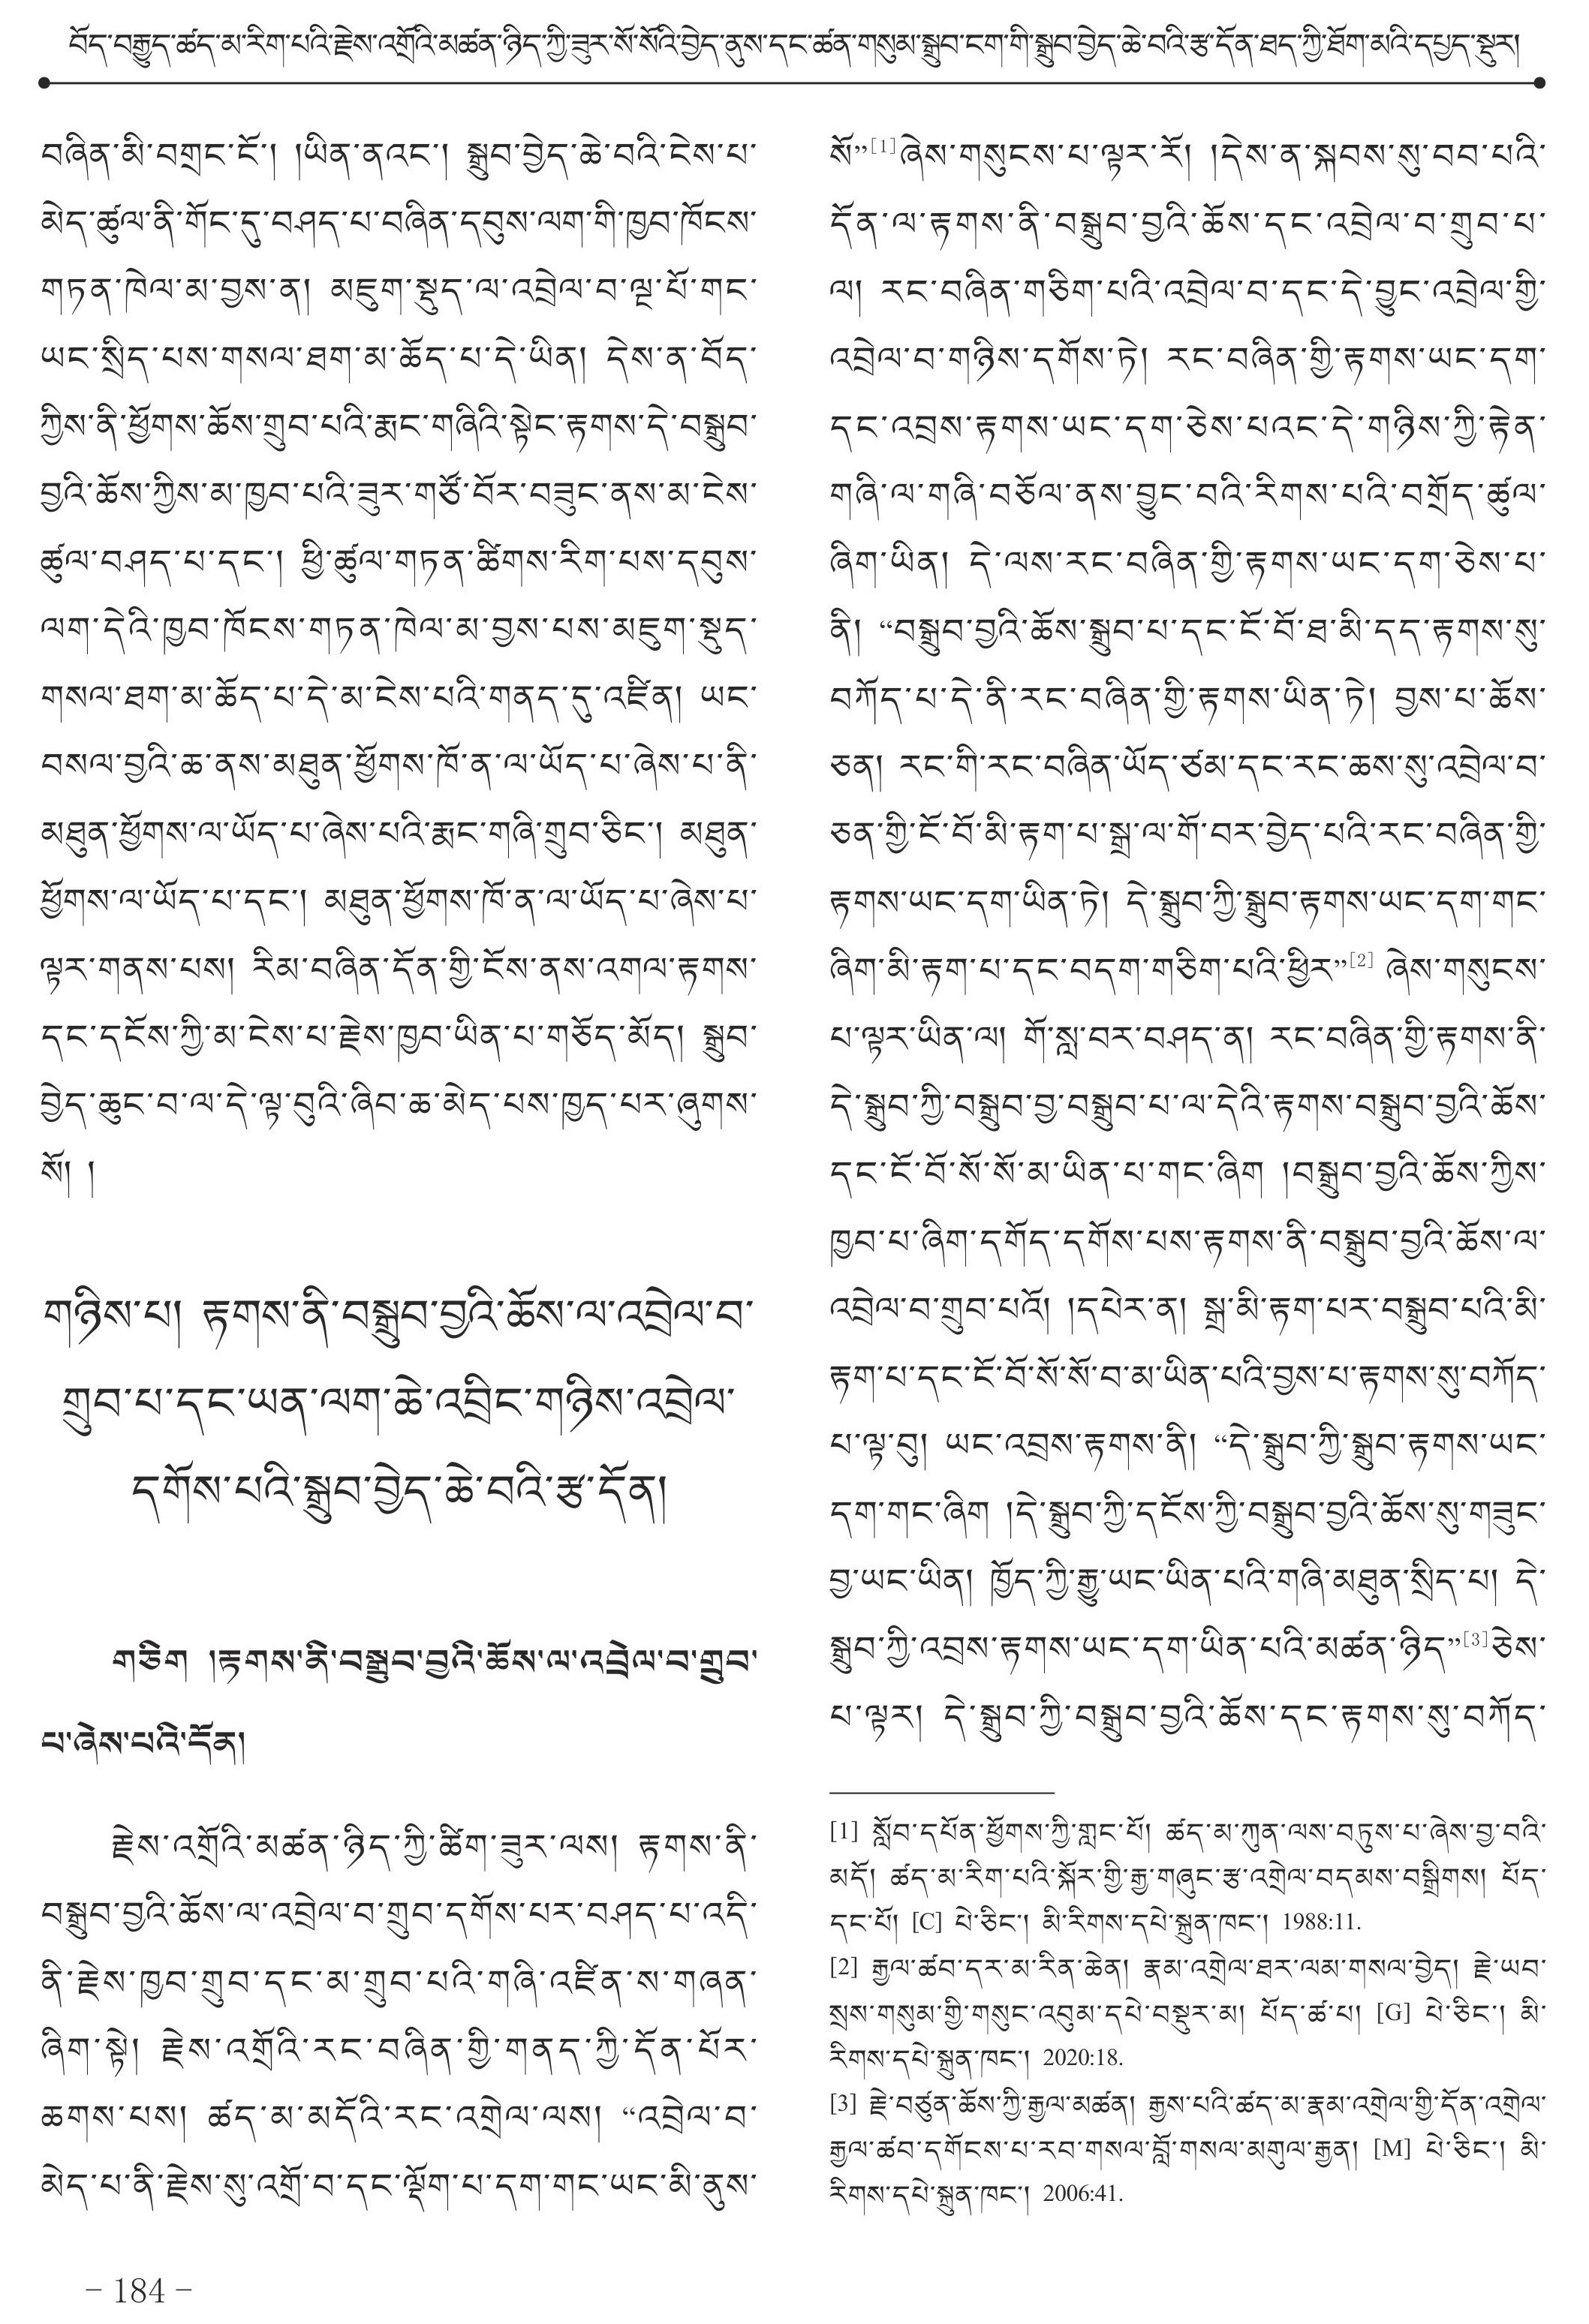 བོད་བརྒྱུད་ཚད་མ་རིག་པའི་རྗེས་འགྲོའི་མཚན་ཉིད་ཀྱི་ཟུར་སོ་སོའི་བྱེད་ནུས་དང་ཚན་གསུམ་སྒྲུབ་ངག་གི་སྒྲུབ་བྱེད་ཆེ་བའི་རྩ་དོན་ཐད་ཀྱི་ཐོག་མའི་དཔྱད་སྡུར།
བཞིན་མི་བགྲང་ངོ་། །ཡིན་ནའང་། སྒྲུབ་བྱེད་ཆེ་བའི་ངེས་པ་
མེད་ཚུལ་ནི་གོང་དུ་བཤད་པ་བཞིན་དབུས་ལག་གི་ཁྱབ་ཁོངས་
གཏན་ཁེལ་མ་བྱས་ན། མཇུག་སྡུད་ལ་འབྲེལ་བ་ལྔ་པོ་གང་
ཡང་སྲིད་པས་གསལ་ཐག་མ་ཆོད་པ་དེ་ཡིན། དེས་ན་བོད་
ཀྱིས་ནི་ཕྱོགས་ཆོས་གྲུབ་པའི་རྨང་གཞིའི་སྟེང་རྟགས་དེ་བསྒྲུབ་
བྱའི་ཆོས་ཀྱིས་མ་ཁྱབ་པའི་ཟུར་གཙོ་བོར་བཟུང་ནས་མ་ངེས་
ཚུལ་བཤད་པ་དང་། ཕྱི་ཚུལ་གཏན་ཚིགས་རིག་པས་དབུས་
ལག་དེའི་ཁྱབ་ཁོངས་གཏན་ཁེལ་མ་བྱས་པས་མཇུག་སྡུད་
གསལ་ཐག་མ་ཆོད་པ་དེ་མ་ངེས་པའི་གནད་དུ་འཛིན། ཡང་
བསལ་བྱའི་ཆ་ནས་མཐུན་ཕྱོགས་ཁོ་ན་ལ་ཡོད་པ་ཞེས་པ་ནི་
མཐུན་ཕྱོགས་ལ་ཡོད་པ་ཞེས་པའི་རྨང་གཞི་གྲུབ་ཅིང་། མཐུན་
ཕྱོགས་ལ་ཡོད་པ་དང་། མཐུན་ཕྱོགས་ཁོ་ན་ལ་ཡོད་པ་ཞེས་པ་
ལྟར་གནས་པས། རིམ་བཞིན་དོན་གྱི་ངོས་ནས་འགལ་རྟགས་
དང་དངོས་ཀྱི་མ་ངེས་པ་རྗེས་ཁྱབ་ཡིན་པ་གཅོད་མོད། སྒྲུབ་
བྱེད་ཆུང་བ་ལ་དེ་ལྟ་བུའི་ཞིབ་ཆ་མེད་པས་ཁྱད་པར་ཞུགས་
སོ། །
གཉིས་པ། རྟགས་ནི་བསྒྲུབ་བྱའི་ཆོས་ལ་འབྲེལ་བ་
གྲུབ་པ་དང་ཡན་ལག་ཆེ་འབྲིང་གཉིས་འབྲེལ་
དགོས་པའི་སྒྲུབ་བྱེད་ཆེ་བའི་རྩ་དོན།
གཅིག །རྟགས་ནི་བསྒྲུབ་བྱའི་ཆོས་ལ་འབྲེལ་བ་གྲུབ་
པ་ཞེས་པའི་དོན།
རྗེས་འགྲོའི་མཚན་ཉིད་ཀྱི་ཚིག་ཟུར་ལས། རྟགས་ནི་
བསྒྲུབ་བྱའི་ཆོས་ལ་འབྲེལ་བ་གྲུབ་དགོས་པར་བཤད་པ་འདི་
ནི་རྗེས་ཁྱབ་གྲུབ་དང་མ་གྲུབ་པའི་གཞི་འཛིན་ས་གཞན་
ཞིག་སྟེ། རྗེས་འགྲོའི་རང་བཞིན་གྱི་གནད་ཀྱི་དོན་པོར་
ཆགས་པས། ཚད་མ་མདོའི་རང་འགྲེལ་ལས། “འབྲེལ་བ་
མེད་པ་ནི་རྗེས་སུ་འགྲོ་བ་དང་ལྡོག་པ་དག་གང་ཡང་མི་ནུས་
སོ”[1]ཞེས་གསུངས་པ་ལྟར་རོ། །དེས་ན་སྐབས་སུ་བབ་པའི་
དོན་ལ་རྟགས་ནི་བསྒྲུབ་བྱའི་ཆོས་དང་འབྲེལ་བ་གྲུབ་པ་
ལ། རང་བཞིན་གཅིག་པའི་འབྲེལ་བ་དང་དེ་བྱུང་འབྲེལ་གྱི་
འབྲེལ་བ་གཉིས་དགོས་ཏེ། རང་བཞིན་གྱི་རྟགས་ཡང་དག་
དང་འབྲས་རྟགས་ཡང་དག་ཅེས་པའང་དེ་གཉིས་ཀྱི་རྟེན་
གཞི་ལ་གཞི་བཅོལ་ནས་བྱུང་བའི་རིགས་པའི་བགྲོད་ཚུལ་
ཞིག་ཡིན། དེ་ལས་རང་བཞིན་གྱི་རྟགས་ཡང་དག་ཅེས་པ་
ནི། “བསྒྲུབ་བྱའི་ཆོས་སྒྲུབ་པ་དང་ངོ་བོ་ཐ་མི་དད་རྟགས་སུ་
བཀོད་པ་དེ་ནི་རང་བཞིན་གྱི་རྟགས་ཡིན་ཏེ། བྱས་པ་ཆོས་
ཅན། རང་གི་རང་བཞིན་ཡོད་ཙམ་དང་རང་ཆས་སུ་འབྲེལ་བ་
ཅན་གྱི་ངོ་བོ་མི་རྟག་པ་སྒྲ་ལ་གོ་བར་བྱེད་པའི་རང་བཞིན་གྱི་
རྟགས་ཡང་དག་ཡིན་ཏེ། དེ་སྒྲུབ་ཀྱི་སྒྲུབ་རྟགས་ཡང་དག་གང་
ཞིག་མི་རྟག་པ་དང་བདག་གཅིག་པའི་ཕྱིར”[2] ཞེས་གསུངས་
པ་ལྟར་ཡིན་ལ། གོ་སླ་བར་བཤད་ན། རང་བཞིན་གྱི་རྟགས་ནི་
དེ་སྒྲུབ་ཀྱི་བསྒྲུབ་བྱ་བསྒྲུབ་པ་ལ་དེའི་རྟགས་བསྒྲུབ་བྱའི་ཆོས་
དང་ངོ་བོ་སོ་སོ་མ་ཡིན་པ་གང་ཞིག །བསྒྲུབ་བྱའི་ཆོས་ཀྱིས་
ཁྱབ་པ་ཞིག་དགོད་དགོས་པས་རྟགས་ནི་བསྒྲུབ་བྱའི་ཆོས་ལ་
འབྲེལ་བ་གྲུབ་པའོ། །དཔེར་ན། སྒྲ་མི་རྟག་པར་བསྒྲུབ་པའི་མི་
རྟག་པ་དང་ངོ་བོ་སོ་སོ་བ་མ་ཡིན་པའི་བྱས་པ་རྟགས་སུ་བཀོད་
པ་ལྟ་བུ། ཡང་འབྲས་རྟགས་ནི། “དེ་སྒྲུབ་ཀྱི་སྒྲུབ་རྟགས་ཡང་
དག་གང་ཞིག །དེ་སྒྲུབ་ཀྱི་དངོས་ཀྱི་བསྒྲུབ་བྱའི་ཆོས་སུ་གཟུང་
བྱ་ཡང་ཡིན། ཁྱོད་ཀྱི་རྒྱུ་ཡང་ཡིན་པའི་གཞི་མཐུན་སྲིད་པ། དེ་
སྒྲུབ་ཀྱི་འབྲས་རྟགས་ཡང་དག་ཡིན་པའི་མཚན་ཉིད”[3]ཅེས་
པ་ལྟར། དེ་སྒྲུབ་ཀྱི་བསྒྲུབ་བྱའི་ཆོས་དང་རྟགས་སུ་བཀོད་
[1] སློབ་དཔོན་ཕྱོགས་ཀྱི་གླང་པོ། ཚད་མ་ཀུན་ལས་བཏུས་པ་ཞེས་བྱ་བའི་
མདོ། ཚད་མ་རིག་པའི་སྐོར་གྱི་རྒྱ་གཞུང་རྩ་འགྲེལ་བདམས་བསྒྲིགས། པོད་
དང་པོ། [C] པེ་ཅིང་། མི་རིགས་དཔེ་སྐྲུན་ཁང་། 1988:11.
[2] རྒྱལ་ཚབ་དར་མ་རིན་ཆེན། རྣམ་འགྲེལ་ཐར་ལམ་གསལ་བྱེད། རྗེ་ཡབ་
སྲས་གསུམ་གྱི་གསུང་འབུམ་དཔེ་བསྡུར་མ། པོད་ཚ་པ། [G] པེ་ཅིང་། མི་
རིགས་དཔེ་སྐྲུན་ཁང་། 2020:18.
[3] རྗེ་བཙུན་ཆོས་ཀྱི་རྒྱལ་མཚན། རྒྱས་པའི་ཚད་མ་རྣམ་འགྲེལ་གྱི་དོན་འགྲེལ་
རྒྱལ་ཚབ་དགོངས་པ་རབ་གསལ་བློ་གསལ་མགུལ་རྒྱན། [M] པེ་ཅིང་། མི་
རིགས་དཔེ་སྐྲུན་ཁང་། 2006:41.
– 184 –